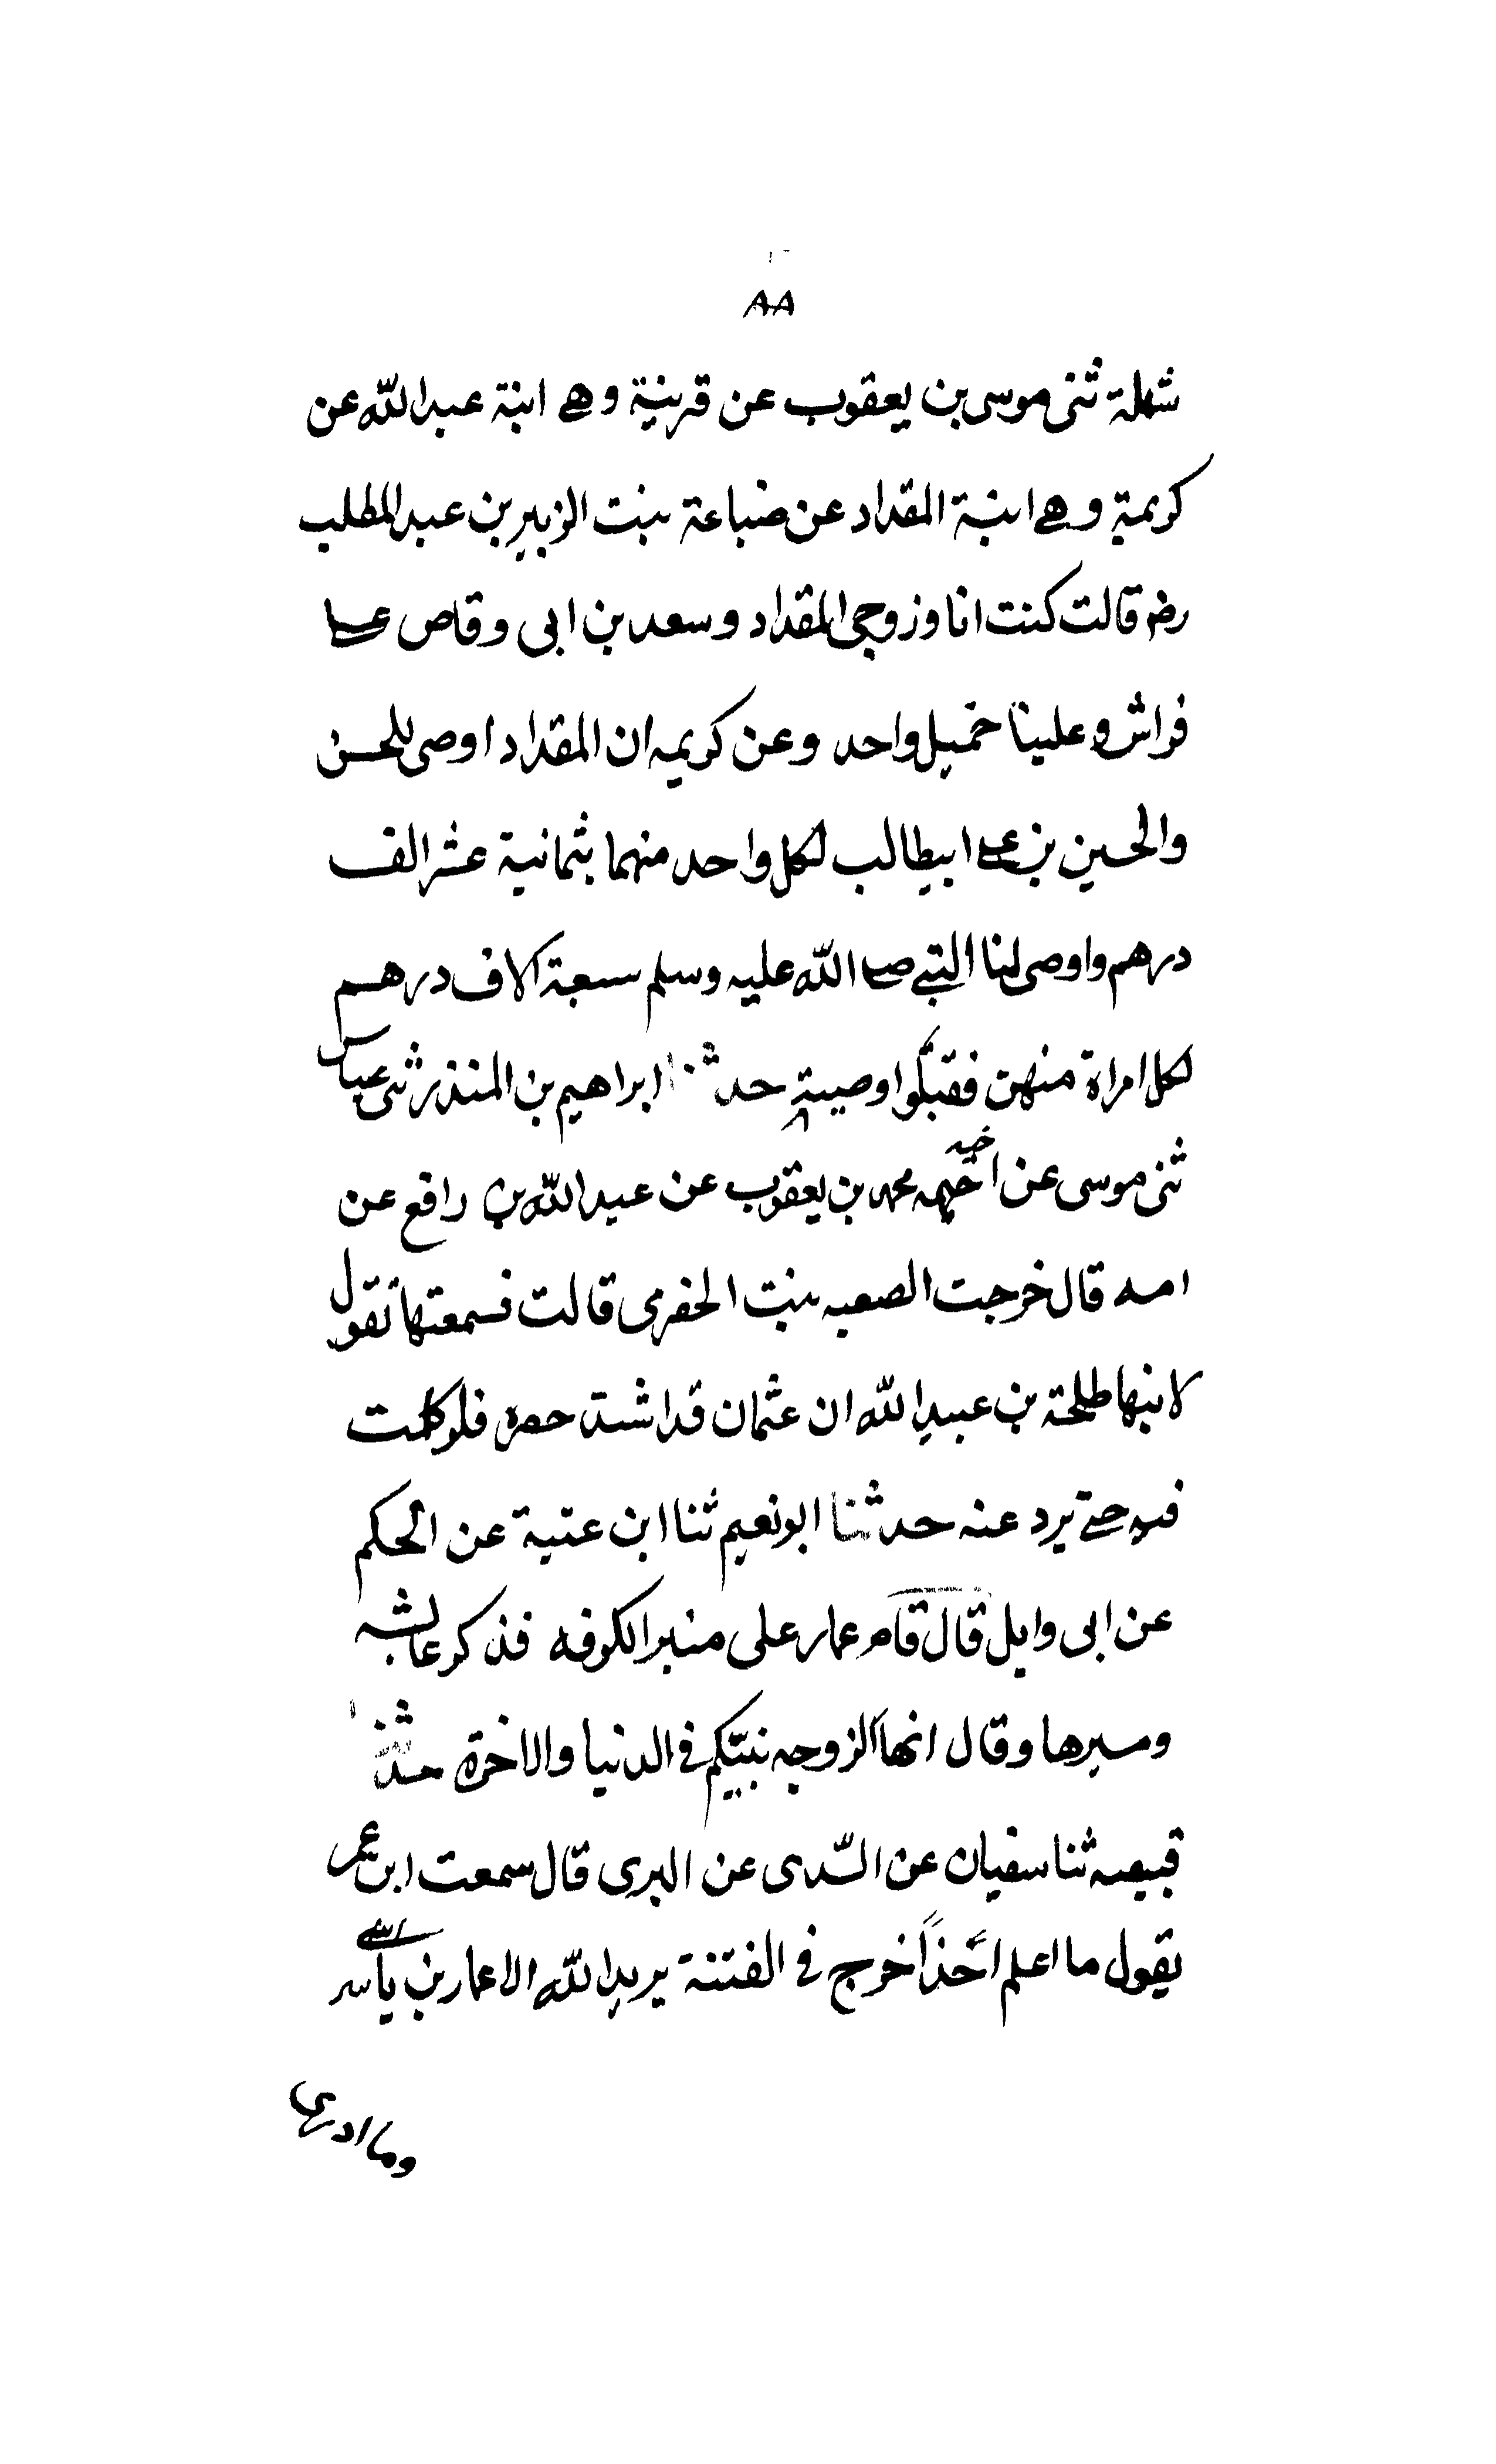 ٨٨
شملة ثنى موسى بن يعقوب عن قرينة وهى ابنة عبد الله عن
كريمة وهى ابنة المقداد عن ضباعة بنت الزبير بن عبد المطلب
رض قالت كنت انا وزوجى المقداد وسعد بن ابى وقاص على
فراش وعلينا خميل واحد وعن كريمه ان المقداد اوصى للحسن
والحسين بن على ابيطالب لكل واحد منهما بثمانية عشر الف
درهم واوصى لنسا النبى صلى الله عليه وسلم سبعة الاف درهم
لكل امراة منهن فقبلوا وصيته حدثنا ابراهيم بن المنذر ثنى عباس
ثنى موسى عن اخيه محمد بن يعقوب عن عبد الله بن رافع عن
امه قال خرجت الصعبه بنت الحضرمى قالت فسمعتها تقول
لابنها طلحة بن عبيد الله ان عثمان قد اشتد حصره فلو كلمت
فيه حتى يرد عنه حدثنا ابو نعيم ثنا ابن عتبة عن الحكم
عن ابى وايل قال قام عمار على منبر الكوفه فذكر عائشه
ومسيرها وقال انها لزوجه نبيكم فى الدنيا والاخرة حدثنا
قبيصه ثنا سفيان عن السدى عن البهى قال سمعت ابن عمر
يقول ما اعلم احدا خرج فى الفتنة يريد الله الا عمار بن ياسر
وما ادرى